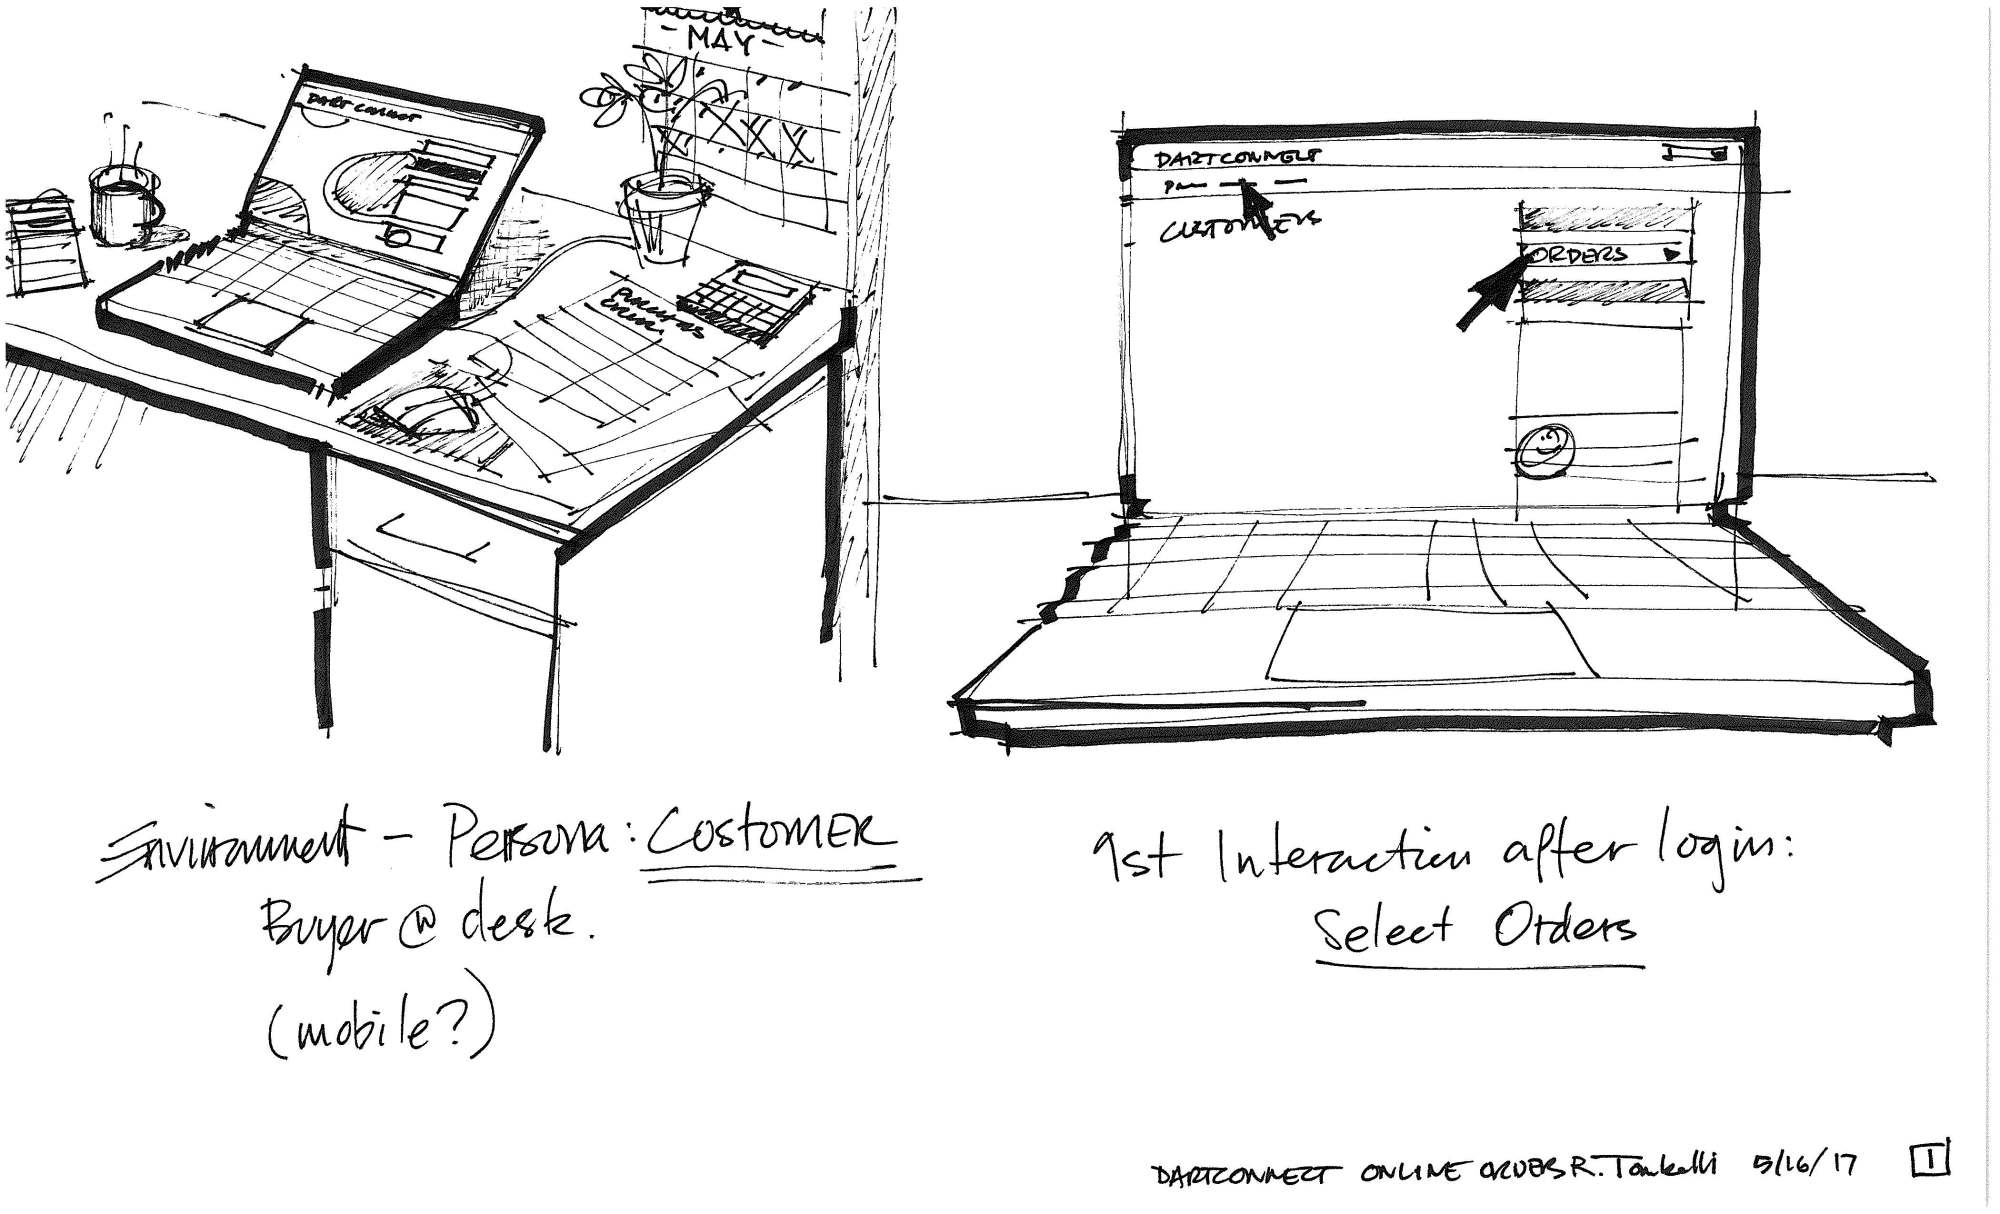 - MAY -
DART CONNECT
PURCHAS
ORDER
DARTCONNECT
CUSTOMERS
ORDERS
Environment - Persona: CUSTOMER
Buyer @ desk.
(mobile?)
1st Interaction after login:
Select Orders
DARTCONNECT ONLINE ORDERS R. 5/16/17 1